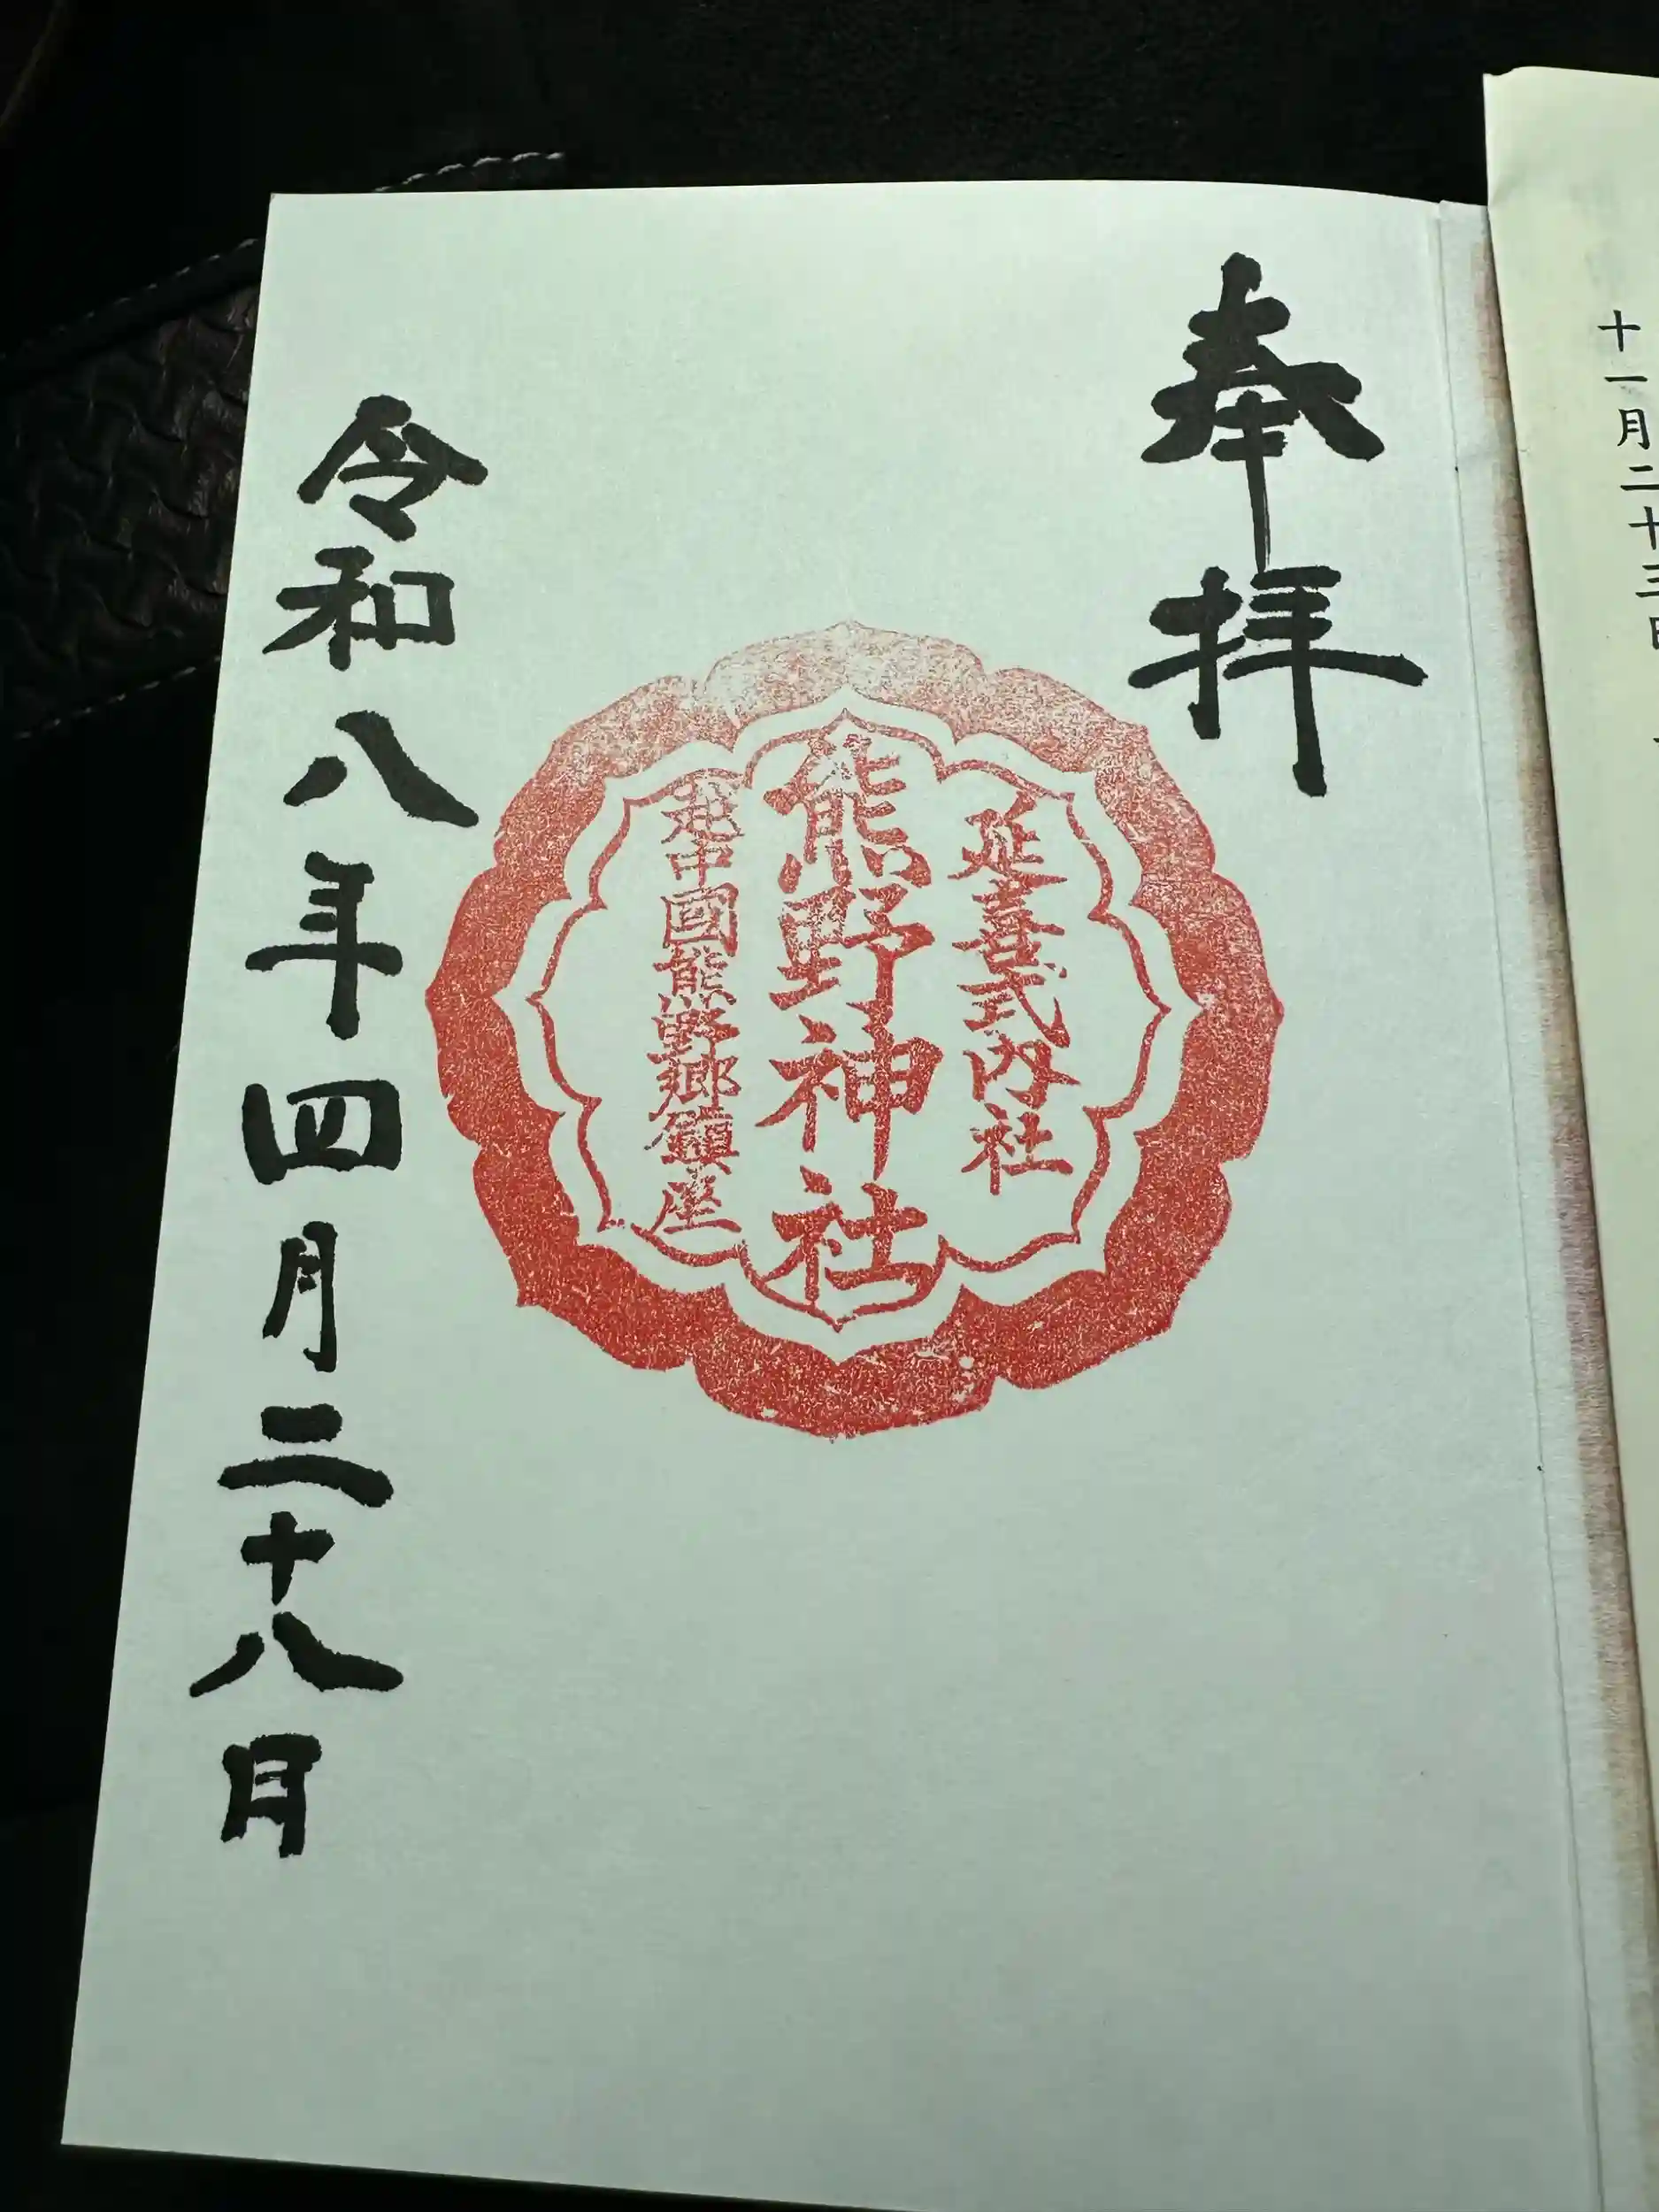 十一月二十三日
奉拝
延喜式内社
熊野神社
越中國熊野郷鎮座
令和八年四月二十八日